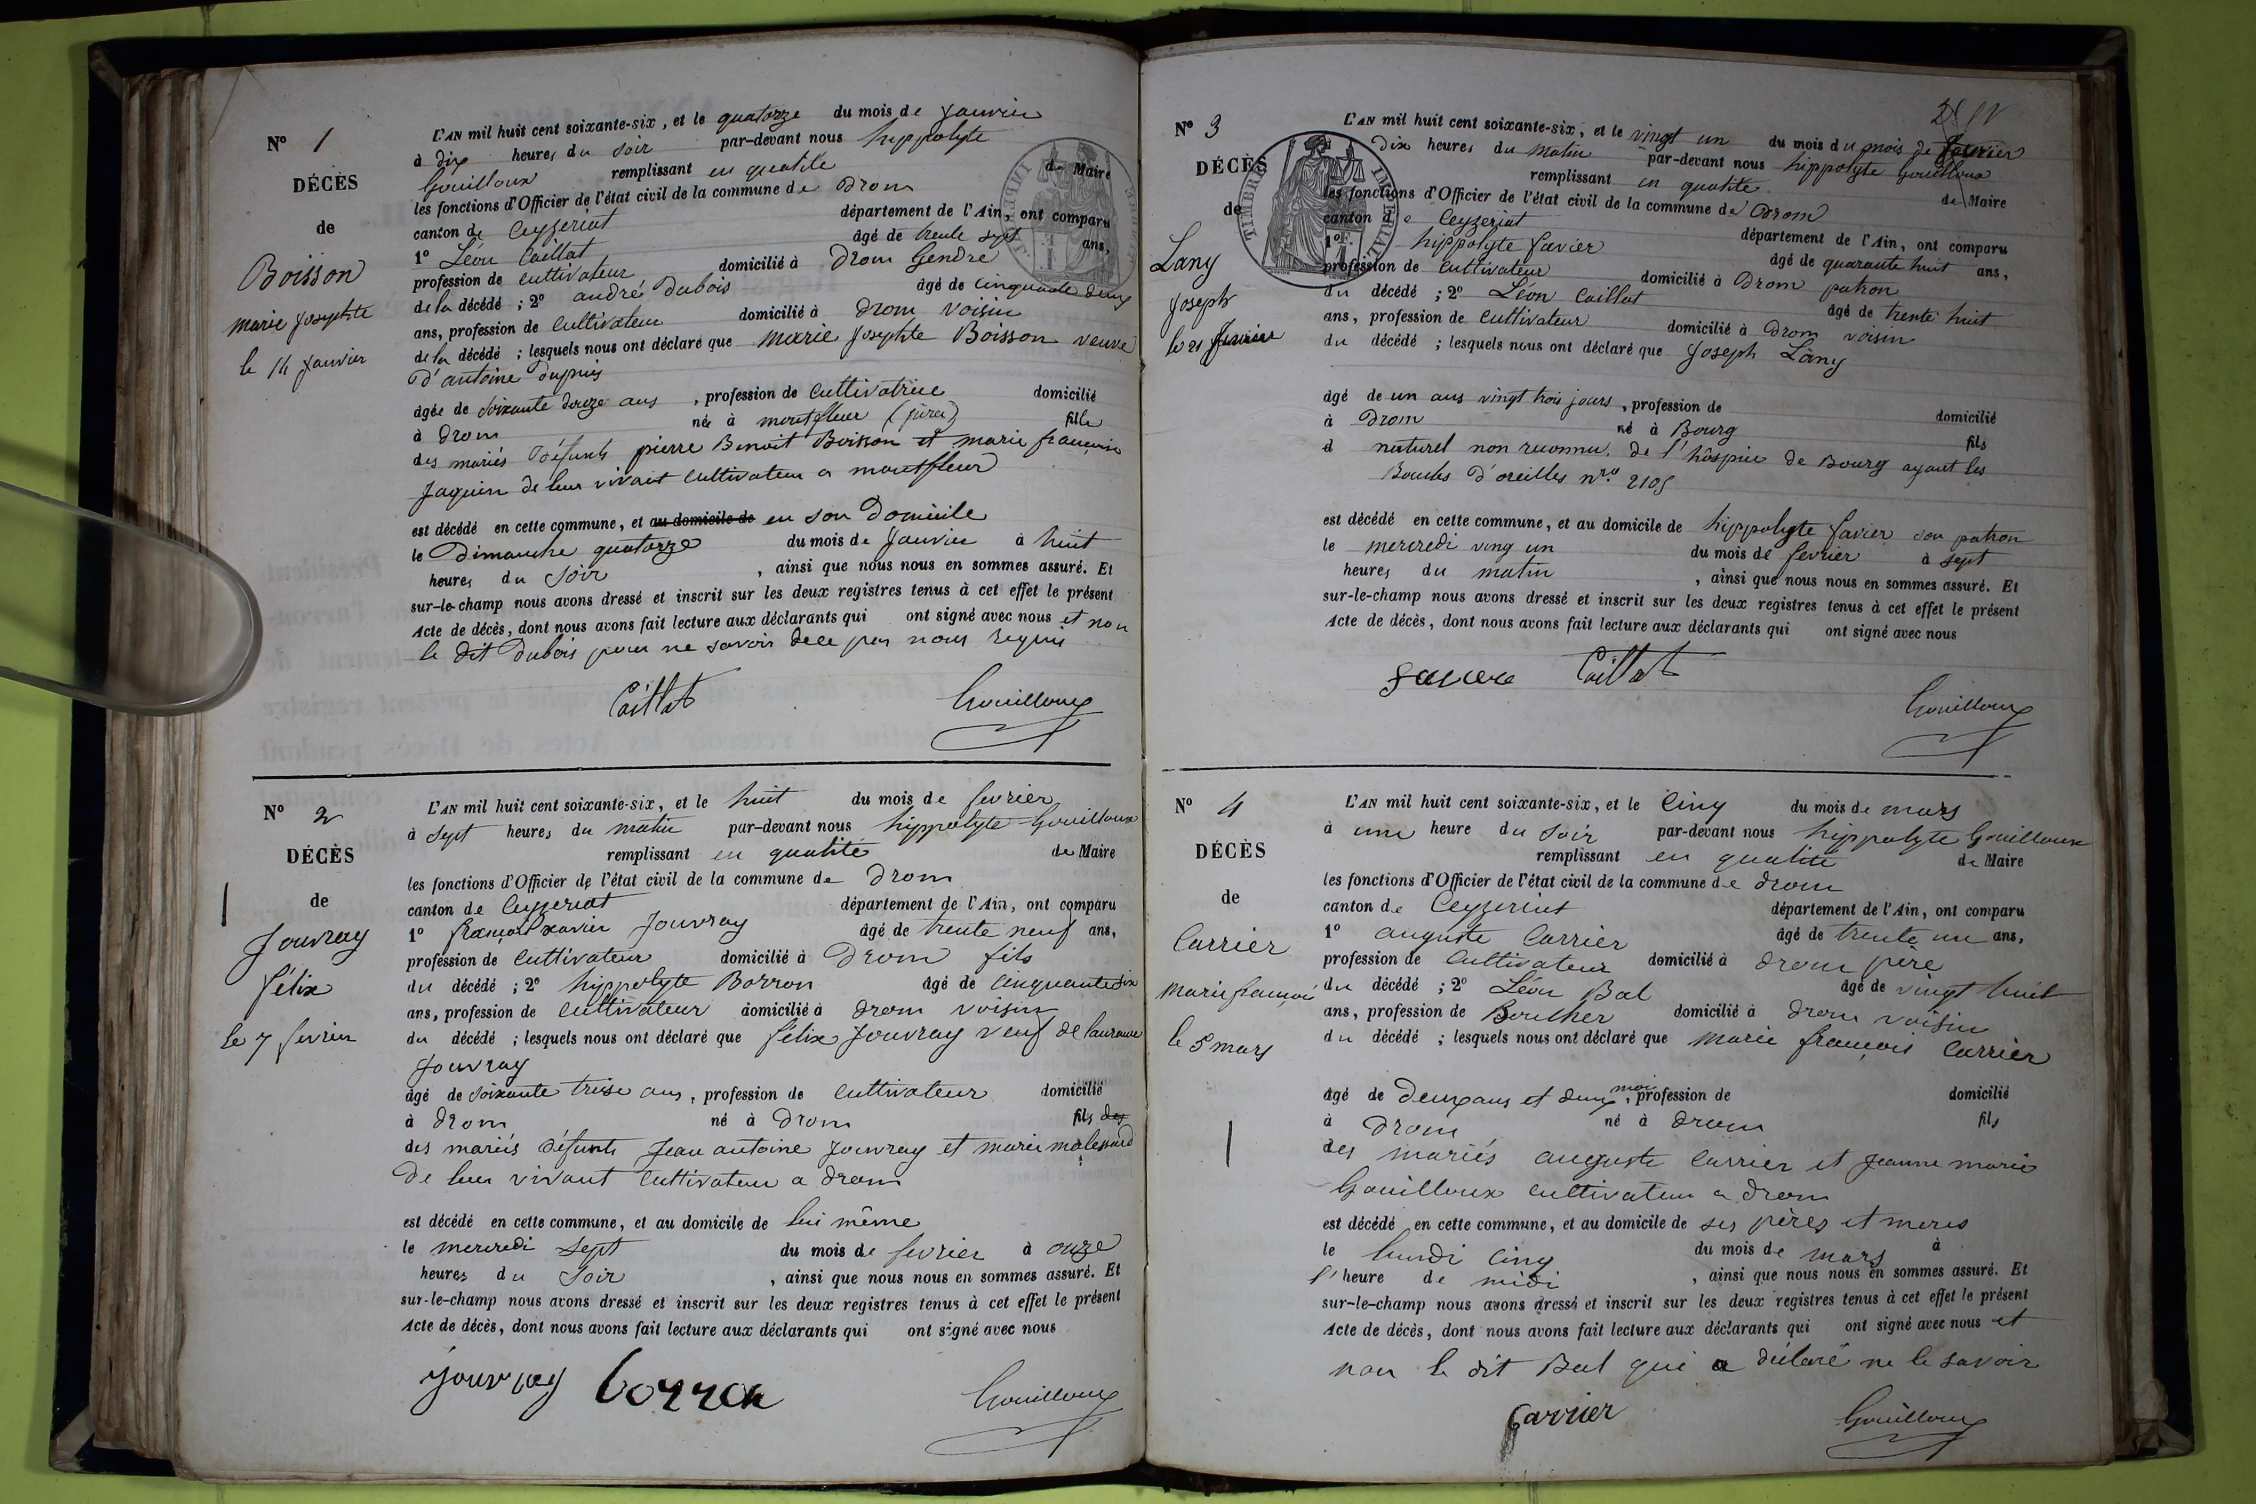 N° 1
DÉCÈS
de
Boisson
marie Josephte
le 14 Janvier
L'AN mil huit cent soixante-six, et le quatorze du mois de Janvier
à dix heures du soir par-devant nous hippolyte
Gouilloux remplissant en qualité de Maire
les fonctions d'Officier de l'état civil de la commune de Drom
canton de Ceyzeriat département de l'Ain, ont comparu
1° Léon Caillat âgé de trente sept ans,
profession de cultivateur domicilié à Drom Gendre
de la décédé ; 2° andré Dubois âgé de cinquante deux
ans, profession de cultivateur domicilié à Drom voisin
de la décédé ; lesquels nous ont déclaré que marie Josephte Boisson veuve
d'antoine Dupuis
âgée de soixante douze ans , profession de cultivatrice domicilié
à Drom née à montfleur (jura) fille
des mariés défunts pierre Benoit Boisson et marie françoise
Jaquin de leur vivant cultivateur a montfleur
est décédé en cette commune, et au domicile de en son Domicile
le Dimanche quatorze du mois de Janvier à huit
heures du soir , ainsi que nous nous en sommes assuré. Et
sur-le-champ nous avons dressé et inscrit sur les deux registres tenus à cet effet le présent
Acte de décès, dont nous avons fait lecture aux déclarants qui ont signé avec nous et non
le dit Dubois pour ne savoir de ce par nous requis
Caillat Gouilloux
N° 2
DÉCÈS
de
Jouvray
félix
le 7 fevrier
L'AN mil huit cent soixante-six, et le huit du mois de fevrier
à sept heures du matin par-devant nous hippolyte Gouilloux
remplissant en qualité de Maire
les fonctions d'Officier de l'état civil de la commune de Drom
canton de Ceyzeriat département de l'Ain, ont comparu
1° françois xavier Jouvray âgé de trente neuf ans,
profession de cultivateur domicilié à Drom fils
du décédé ; 2° hippolyte Borron âgé de cinquante six
ans, profession de cultivateur domicilié à Drom voisin
du décédé ; lesquels nous ont déclaré que félix Jouvray veuf de laurence
Jouvray
âgé de soixante treise ans, profession de cultivateur domicilié
à Drom né à Drom fils des
des mariés défunts Jean antoine Jouvray et marie
de leur vivant cultivateur a Drom
est décédé en cette commune, et au domicile de lui même
le mercredi sept du mois de fevrier à onze
heures du soir , ainsi que nous nous en sommes assuré. Et
sur-le-champ nous avons dressé et inscrit sur les deux registres tenus à cet effet le présent
Acte de décès, dont nous avons fait lecture aux déclarants qui ont signé avec nous
Jouvray borron Gouilloux
N° 3
DÉCÈS
de
Lany
Joseph
le 21 fevrier
TIMBRE IMPÉRIAL
L'AN mil huit cent soixante-six, et le vingt un du mois du mois de fevrier
Dix heures du matin par-devant nous hippolyte Gouilloux
remplissant en qualité de Maire
les fonctions d'Officier de l'état civil de la commune de Drom
canton de Ceyzeriat département de l'Ain, ont comparu
1° hippolyte favier âgé de quarante huit ans,
profession de cultivateur domicilié à Drom patron
du décédé ; 2° Léon Caillat âgé de trente huit
ans, profession de cultivateur domicilié à Drom voisin
du décédé ; lesquels nous ont déclaré que Joseph Lany
âgé de un ans vingt trois jours , profession de domicilié
à Drom né à Bourg fils
d naturel non reconnu, de l'hospice de Bourg ayant les
Boucles d'oreilles nro 2105
est décédé en cette commune, et au domicile de hippolyte favier son patron
le mercredi ving un du mois de fevrier à sept
heures du matin , ainsi que nous nous en sommes assuré. Et
sur-le-champ nous avons dressé et inscrit sur les deux registres tenus à cet effet le présent
Acte de décès, dont nous avons fait lecture aux déclarants qui ont signé avec nous
Caillat
Gouilloux
N° 4
DÉCÈS
de
Carrier
Marie françois
le 5 mars
L'AN mil huit cent soixante-six, et le cinq du mois de mars
à une heure du soir par-devant nous hippolyte Gouilloux
remplissant en qualité de Maire
les fonctions d'Officier de l'état civil de la commune de Drom
canton de Ceyzeriat département de l'Ain, ont comparu
1° auguste Carrier âgé de trente un ans,
profession de cultivateur domicilié à Drom père
du décédé ; 2° Léon Bal âgé de vingt huit
ans, profession de Boucher domicilié à Drom voisin
du décédé ; lesquels nous ont déclaré que marie françois Carrier
âgé de Deux ans et deux moi, profession de domicilié
à Drom né à Drom fils
des mariés auguste Carrier et Jeanne marie
Gouilloux cultivateur a Drom
est décédé en cette commune, et au domicile de ses pères et meres
le lundi cinq du mois de mars à
l'heure de midi , ainsi que nous nous en sommes assuré. Et
sur-le-champ nous avons dressé et inscrit sur les deux registres tenus à cet effet le présent
Acte de décès, dont nous avons fait lecture aux déclarants qui ont signé avec nous et
non le dit Bal qui a déclaré ne le savoir
Carrier Gouilloux